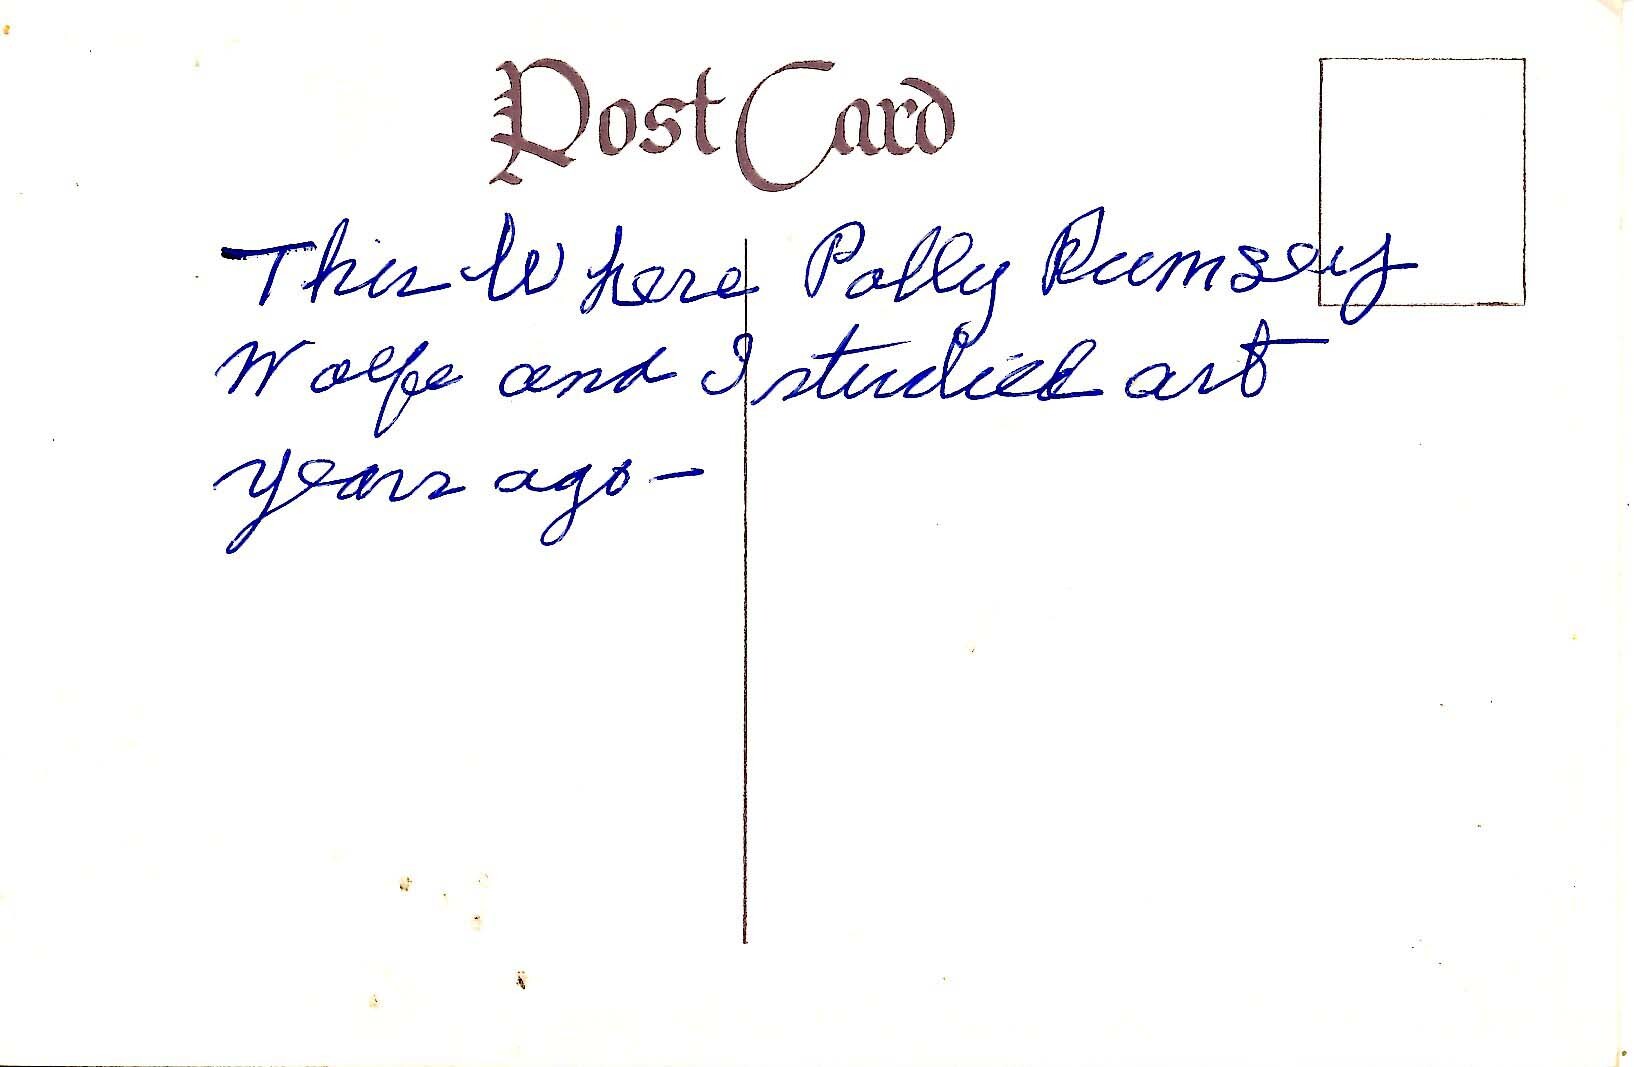 Post Card
This Where Polly Rumsey
Wolfe and I studied art
years ago –